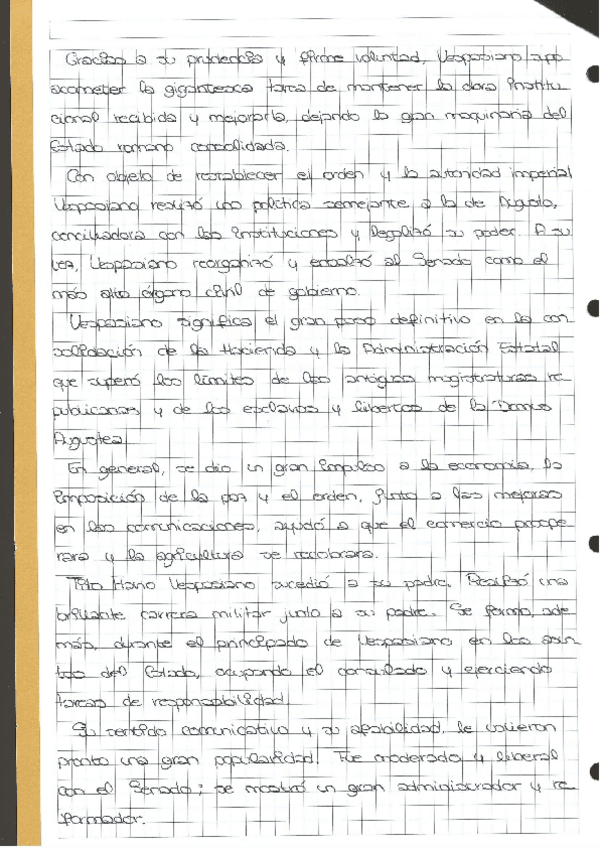 Gracias a su prudencia y firme voluntad, Vespasiano
acometer la gigantesca tarea de mantener la obra Institu
cional recibida y mejorarla, dejando la gran maquinaria del
Estado romano consolidada.
Con objeto de restablecer el orden y la autoridad imperial
Vespasiano realizó una política semejante a la de Augusto,
conciliadora con las Instituciones y legalizó su poder. A su
vez, Vespasiano reorganizó y ensalzó al Senado como el
más alto órgano civil de gobierno.
Vespasiano significa el gran paso definitivo en la con
solidación de la Hacienda y la Administración Estatal
que superó los límites de las antiguas magistraturas re
publicanas y de los esclavos y libertos de la Domus
Augustea.
En general, se dio un gran impulso a la economía, la
imposición de la paz y el orden, junto a las mejoras
en las comunicaciones, ayudó a que el comercio prospe
rara y la agricultura se recobrara.
Tito Flavio Vespasiano sucedió a su padre. Realizó una
brillante carrera militar junto a su padre. Se formó, ade
más, durante el principado de Vespasiano en los asun
tos del Estado, ocupando el consulado y ejerciendo
tareas de responsabilidad.
Su sentido comunicativo y su afabilidad, le valieron
pronto una gran popularidad. Fue moderado y liberal
con el Senado; se mostró un gran administrador y re
formador.